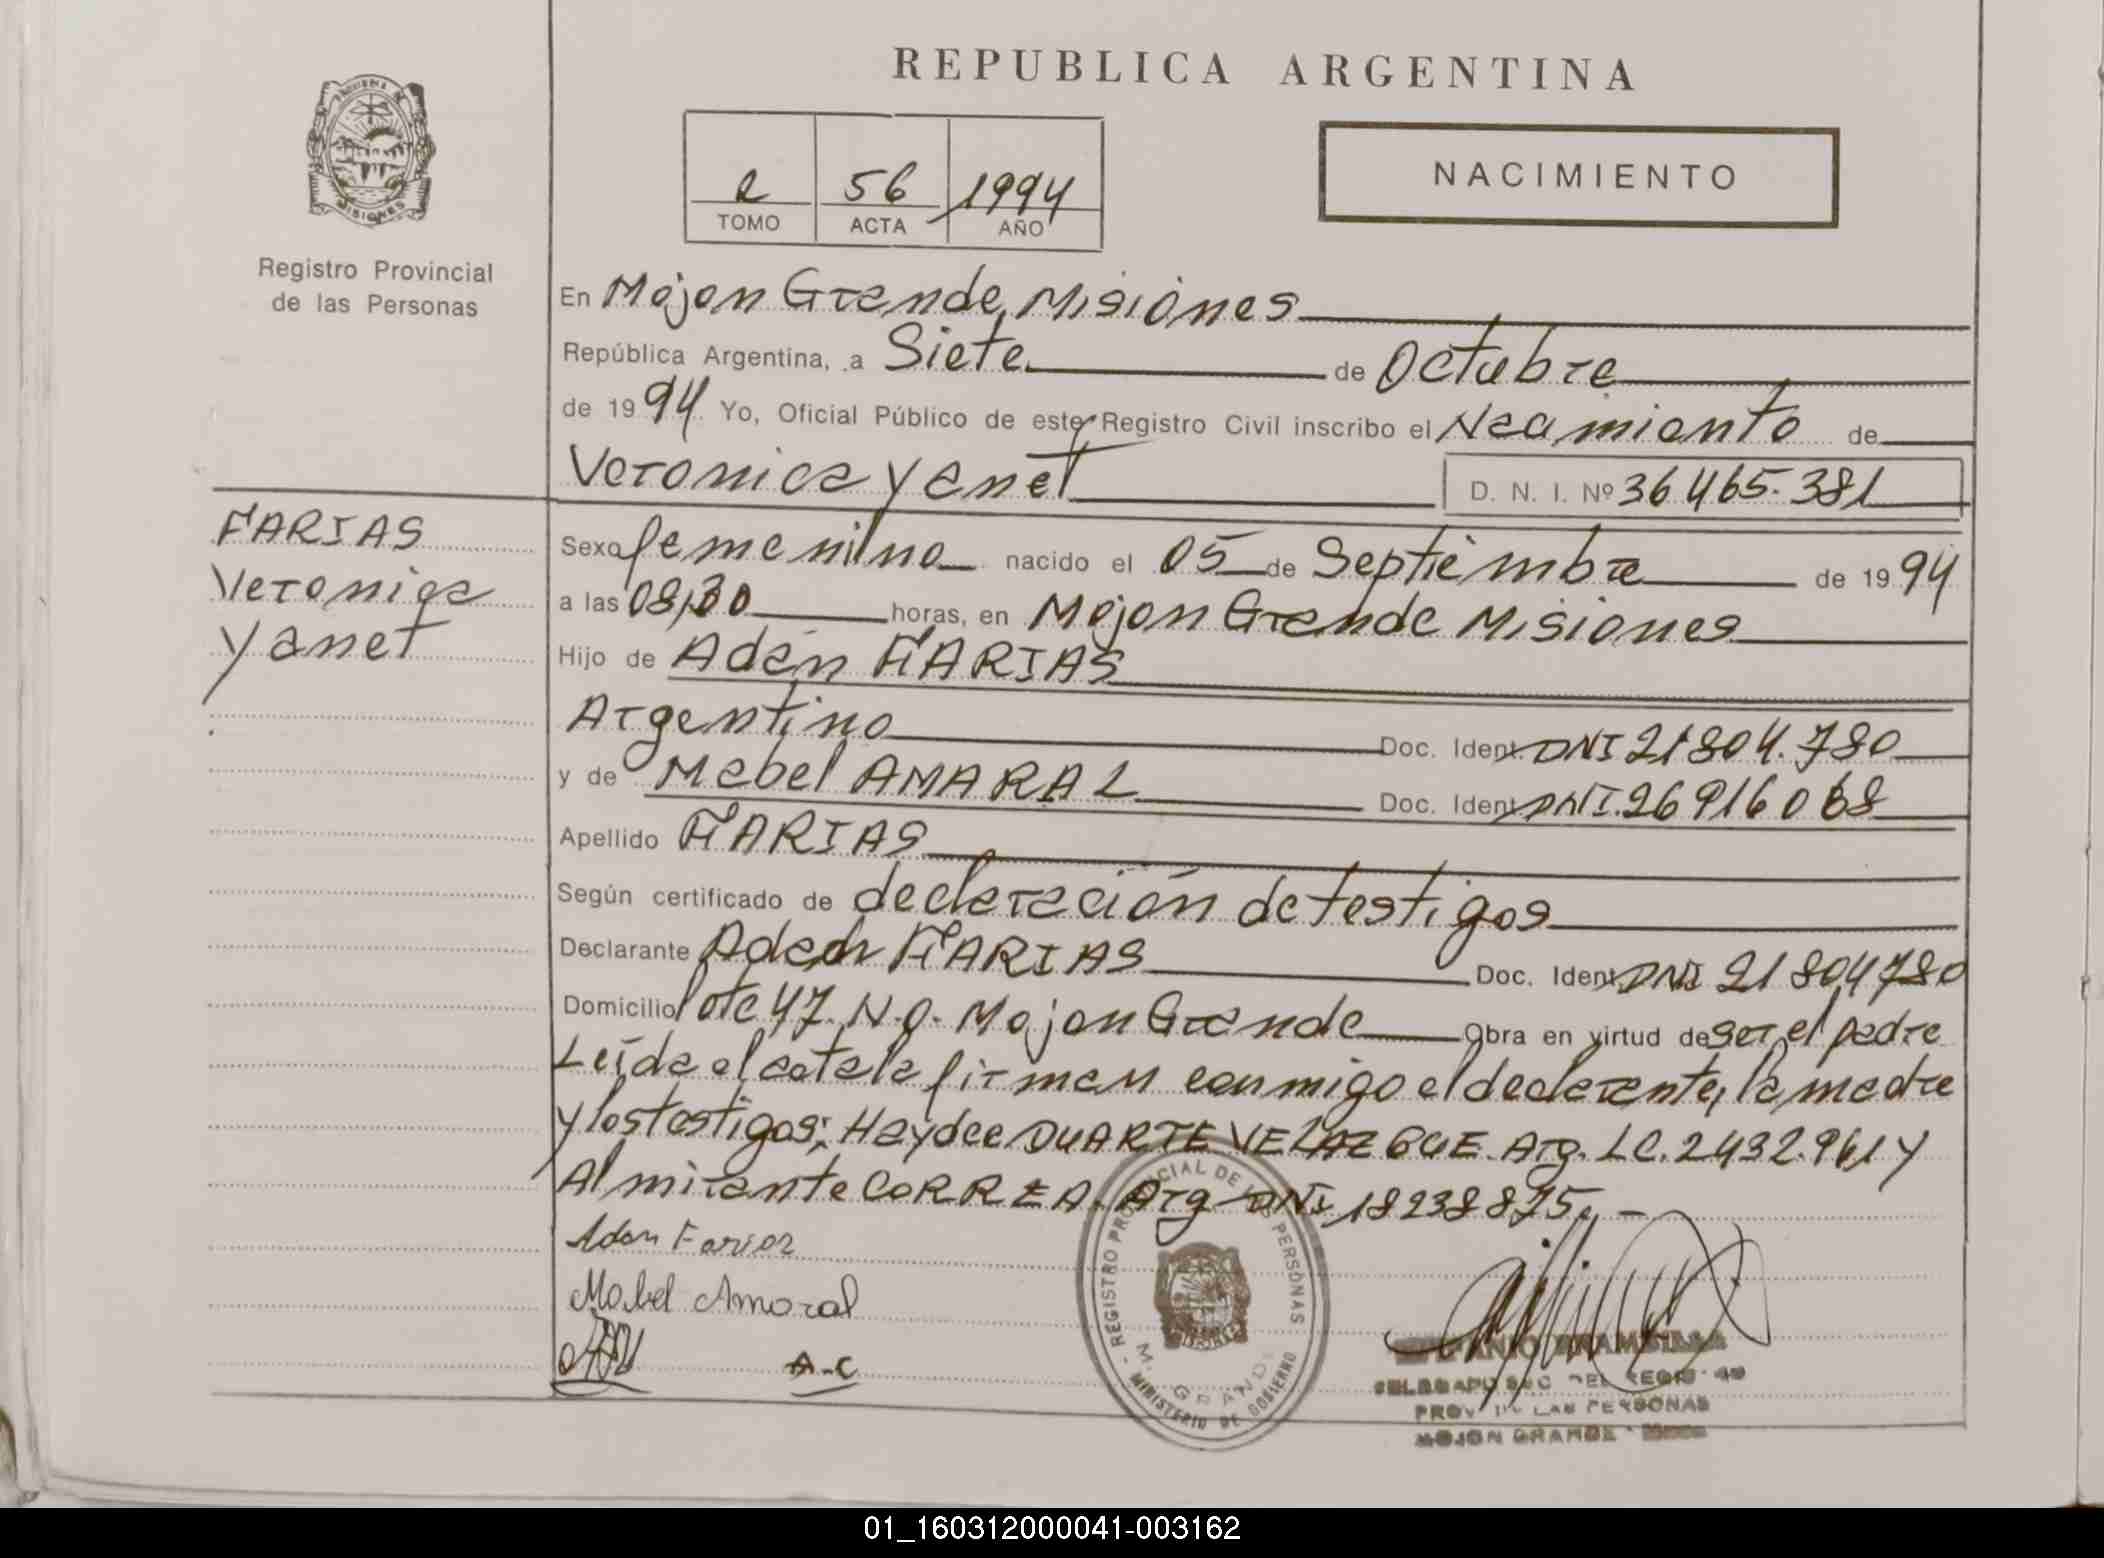 REPUBLICA ARGENTINA
NACIMIENTO
2 56 1994
TOMO ACTA AÑO
MISIONES
Registro Provincial
de las Personas
En Mojon Grande, Misiones
República Argentina, a Siete de Octubre
de 1994 Yo, Oficial Público de este Registro Civil inscribo el Nacimiento de
Veronica Yanet D. N. I. Nº 36465.381
FARIAS
Veronica
Yanet
Sexo femenino nacido el 05 de Septiembre de 1994
a las 08,30 horas, en Mojon Grande Misiones
Hijo de Adán FARIAS
Argentino Doc. Ident. DNI 21804.780
y de Mabel AMARAL Doc. Ident. DNI.26916068
Apellido FARIAS
Según certificado de declaración de testigos
Declarante Adan FARIAS Doc. Ident. DNI 21804780
Domicilio lote 47. N.O. Mojon Grande Obra en virtud de ser el padre
Leída el acta la firman conmigo el declarante, la madre
y los testigos; Haydee DUARTE VELAZQUE. Arg. LC. 2432.961 y
Almirante CORREA. Arg DNI 18238875.
Adan Farias
Mabel Amaral
A-C
REGISTRO PROVINCIAL DE LAS PERSONAS
M. GRANDE
MINISTERIO DE GOBIERNO
PROV. DE LAS PERSONAS
MOJON GRANDE
01_160312000041-003162